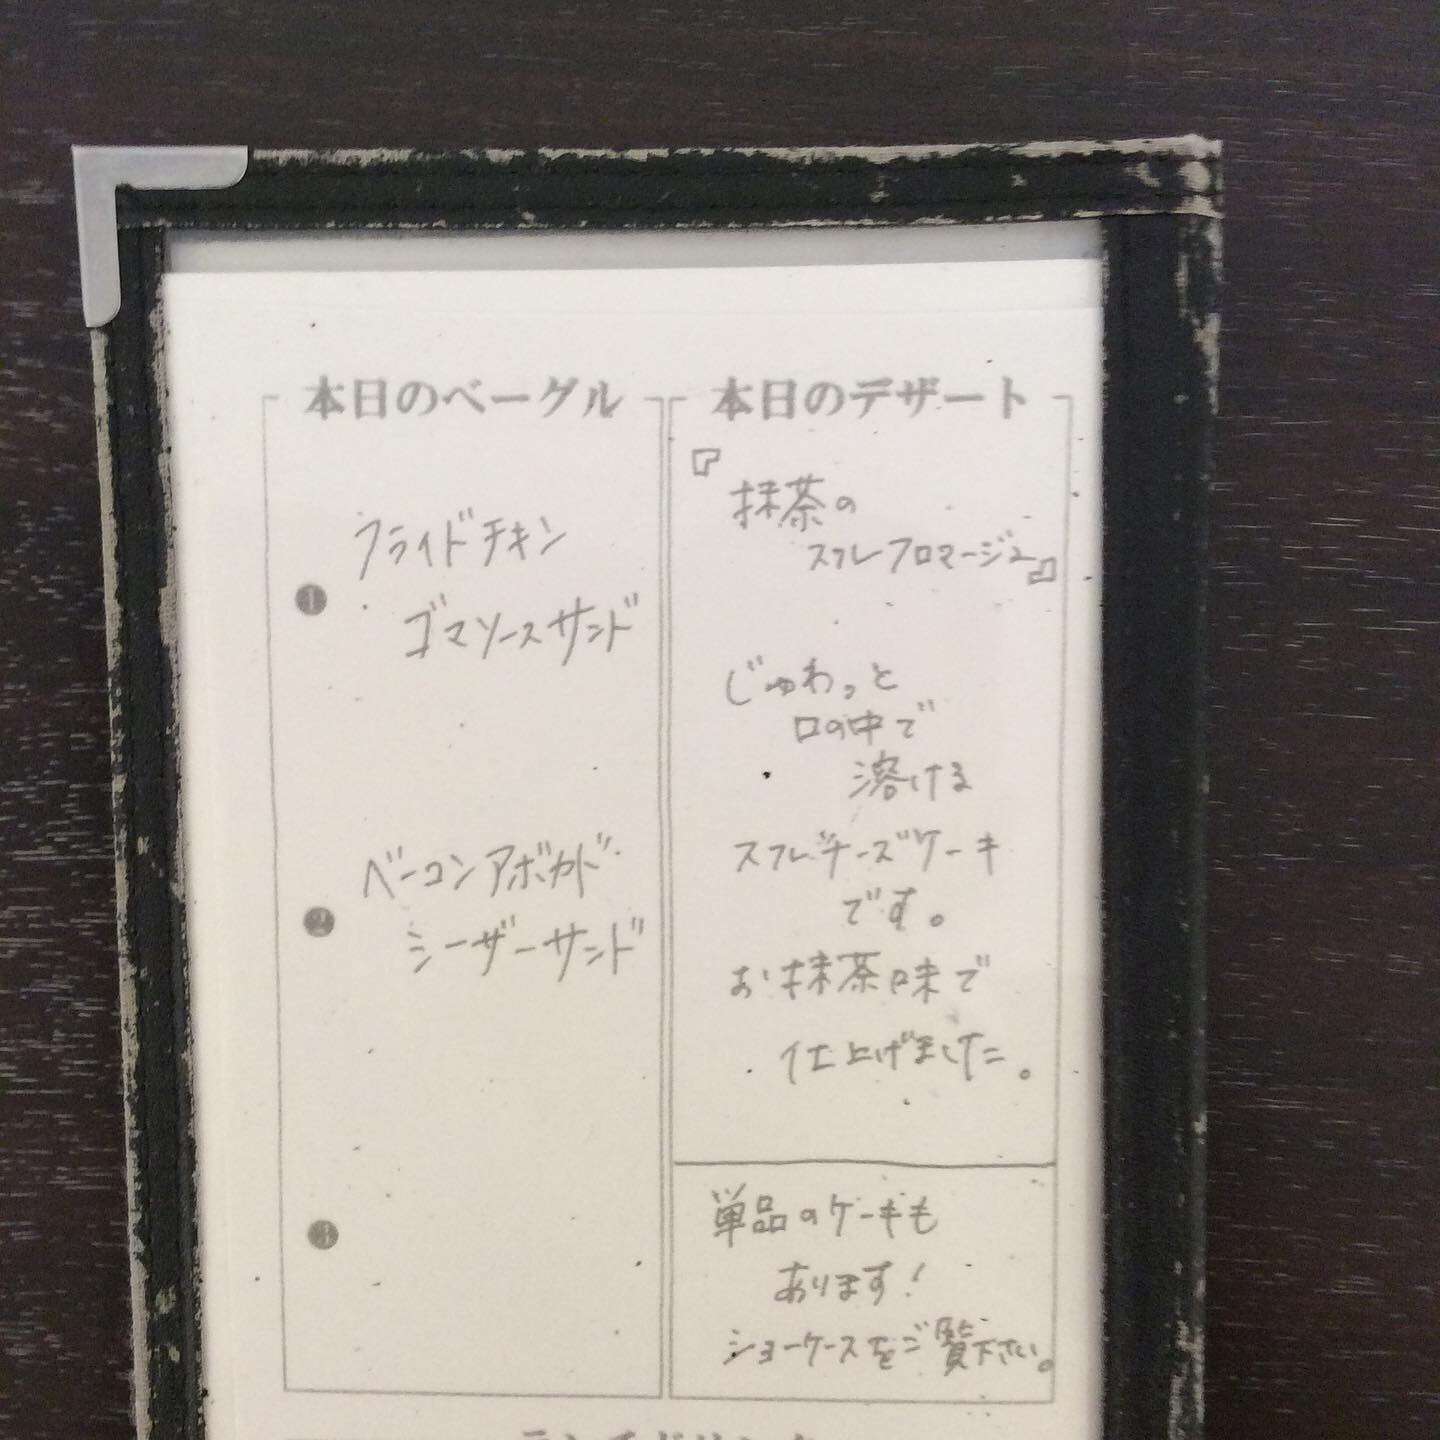 本日のベーグル
❶
フライドチキン
ゴマソースサンド
❷
ベーコンアボカド
シーザーサンド
❸
本日のデザート
『抹茶の
スフレフロマージュ』
じゅわっと
口の中で
溶ける
スフレチーズケーキ
です。
お抹茶味で
仕上げました。
単品のケーキも
あります!
ショーケースをご覧下さい。